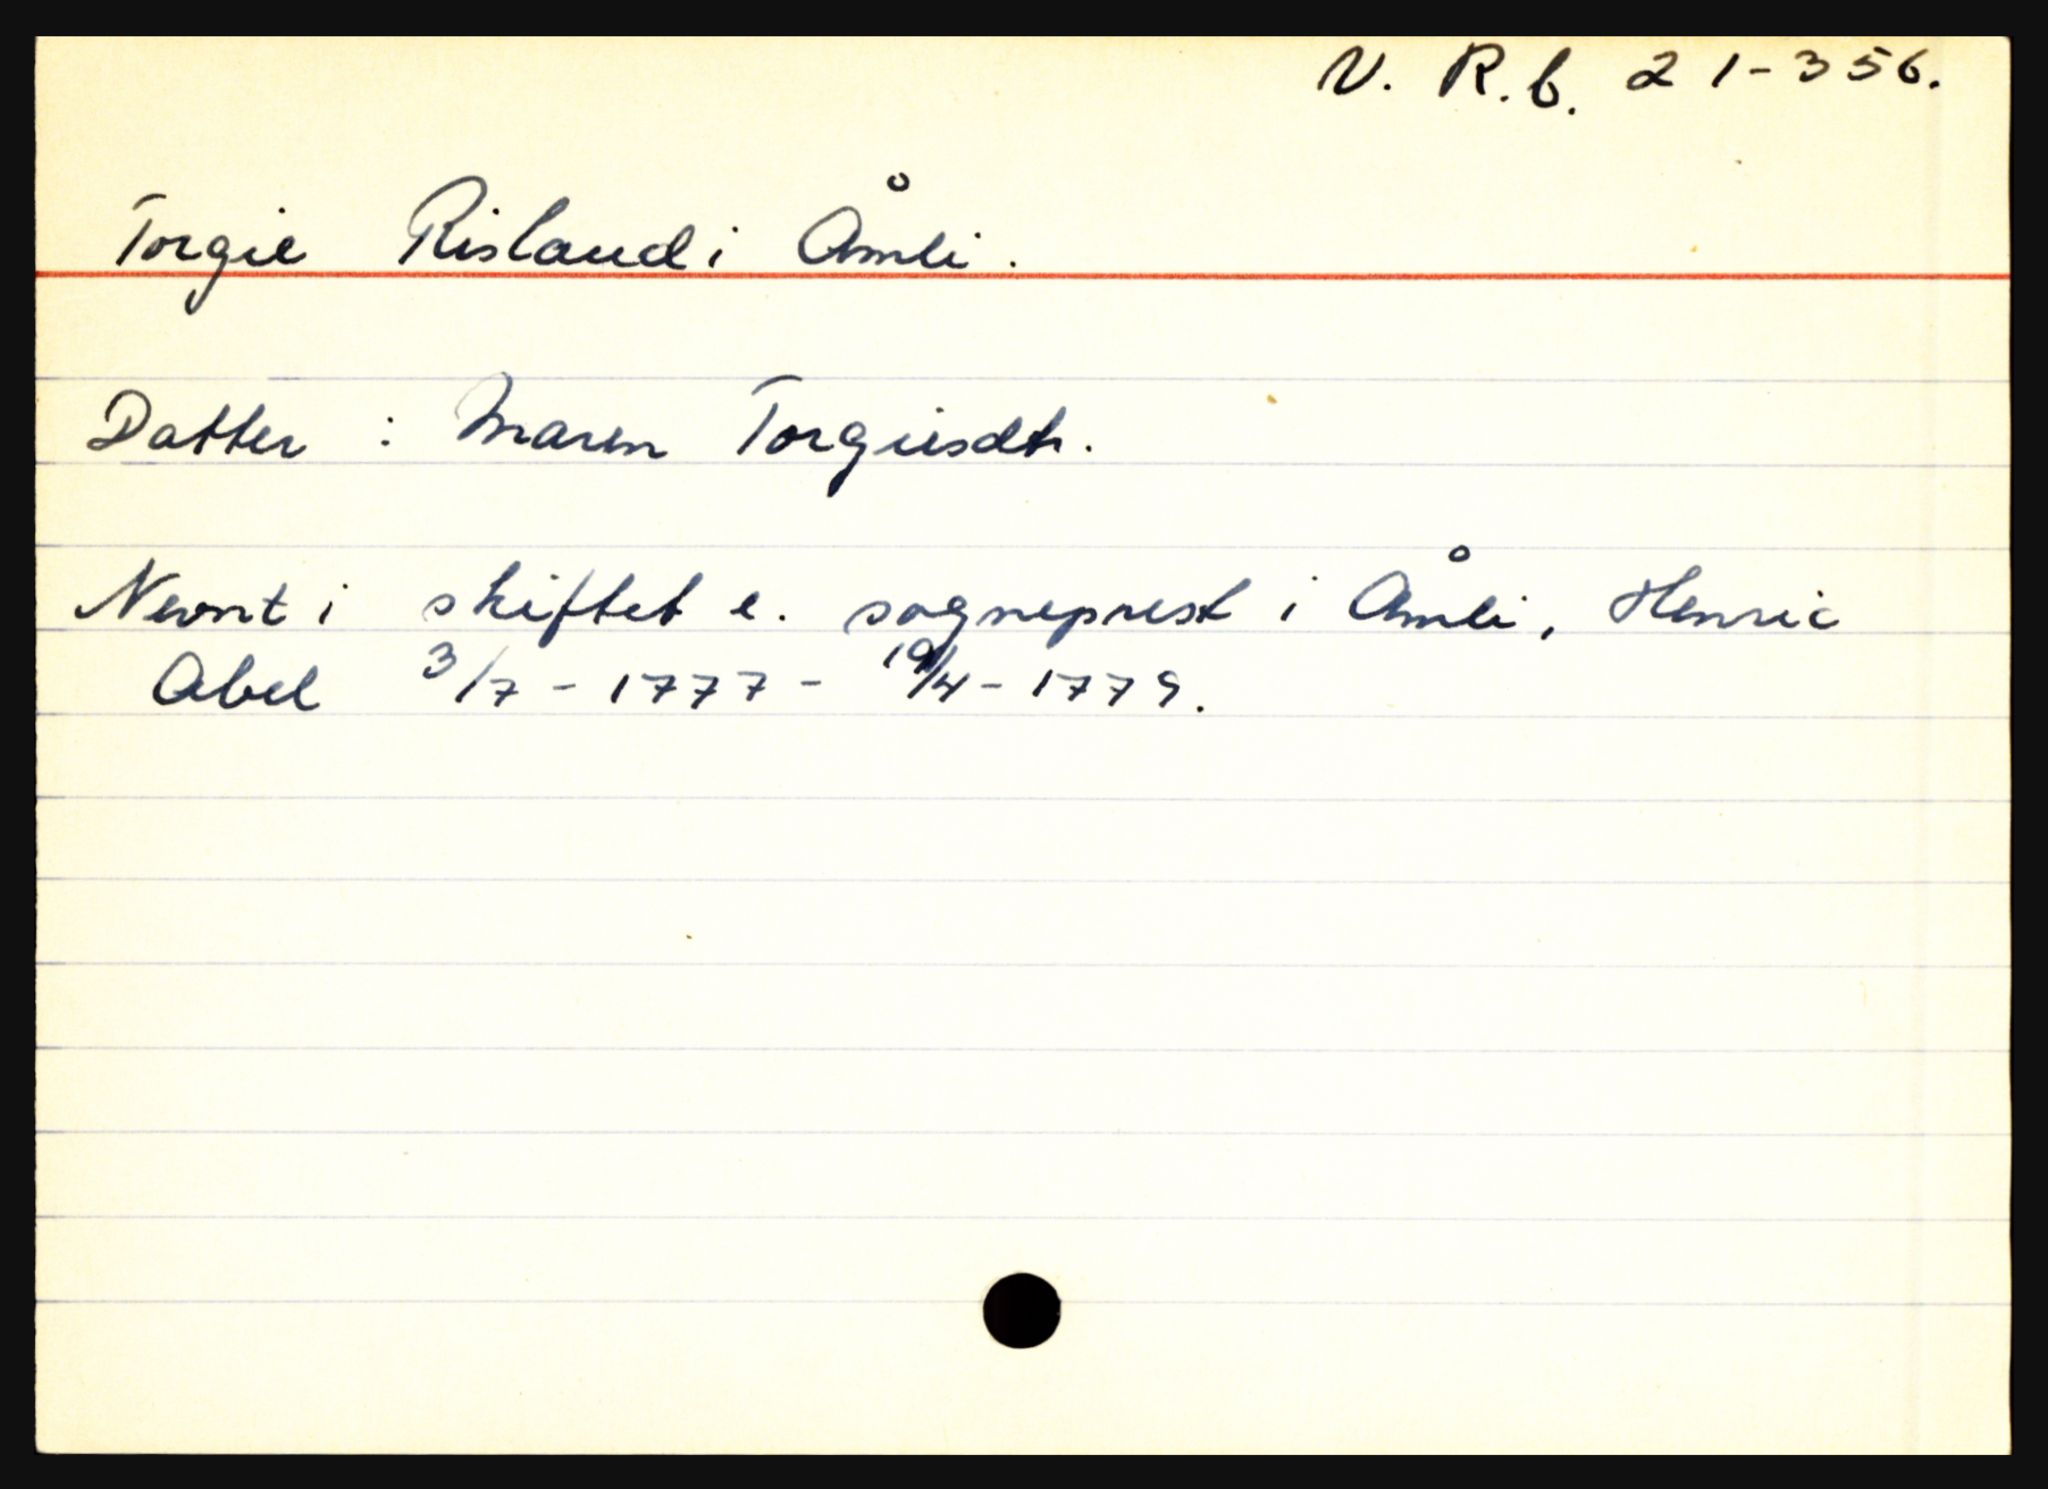 V. R.b. 21-356.
Torgie Risland i Åmli.
Datter : Maren Torgiisdtr.
Nevnt i skiftet e. sogneprest i Åmli, Henric
Abel 3/7 - 1777 - 19/4 - 1779.